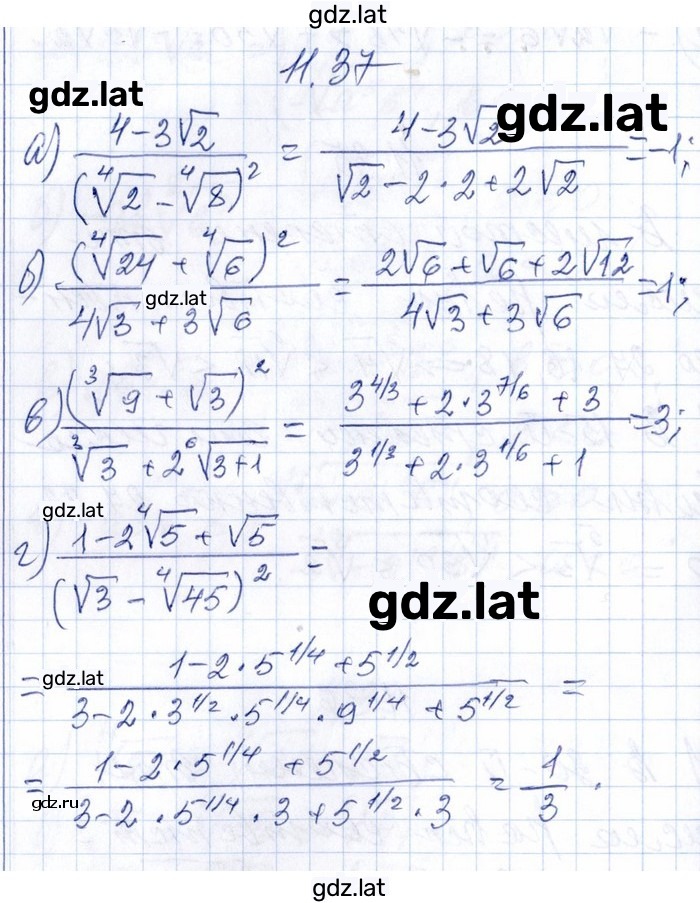 gdz.lat
11.37
gdz.lat
gdz.lat
а) (4-3√2)/(⁴√2 - ⁴√8)² = (4-3√2)/(√2-2·2+2√2) = -1;
б) (⁴√24 + ⁴√6)²/(4√3 + 3√6) = (2√6+√6+2√12)/(4√3+3√6) = 1;
gdz.lat
в) (³√9 + √3)²/(³√3 + 2⁶√3+1) = (3^4/3 + 2·3^7/6 + 3)/(3^1/3 + 2·3^1/6 + 1) = 3;
gdz.lat
г) (1-2⁴√5 + √5)/(√3 - ⁴√45)² =
gdz.lat
gdz.lat
= (1-2·5^1/4 + 5^1/2)/(3-2·3^1/2·5^1/4·9^1/4 + 5^1/2) =
= (1-2·5^1/4 + 5^1/2)/(3-2·5^1/4·3+5^1/2·3) = 1/3.
gdz.ru
gdz.lat